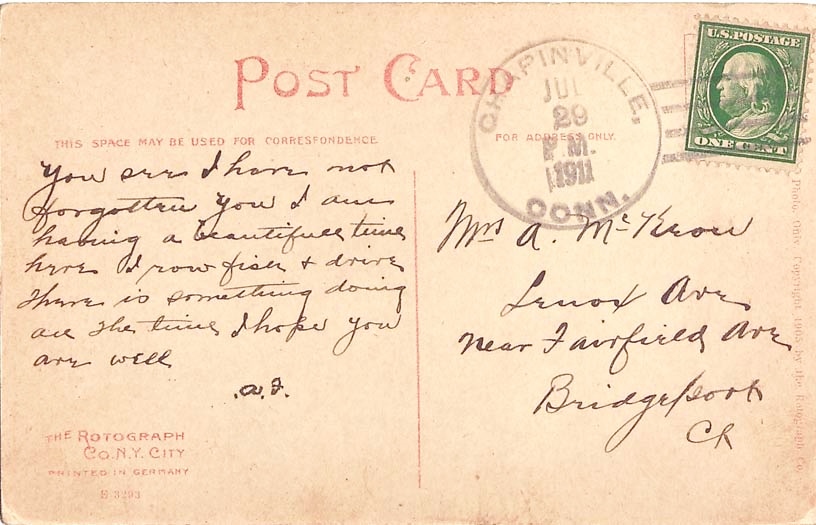 POST CARD
THIS SPACE MAY BE USED FOR CORRESPONDENCE
FOR ADDRESS ONLY.
CHAPINVILLE,
JUL
29
P.M.
1911
CONN.
U.S. POSTAGE
ONE CENT
You see I have not
forgotten you I am
having a beautifull time
here I row fish & drive
there is something doing
all the time I hope you
are well
a.F.
Mrs A. McKeon
Lenox Ave
near Fairfield Ave
Bridgeport
Ct
THE ROTOGRAPH
CO. N.Y. CITY
PRINTED IN GERMANY
E 3293
Photo Only Copyright 1905 by the Rotograph Co.